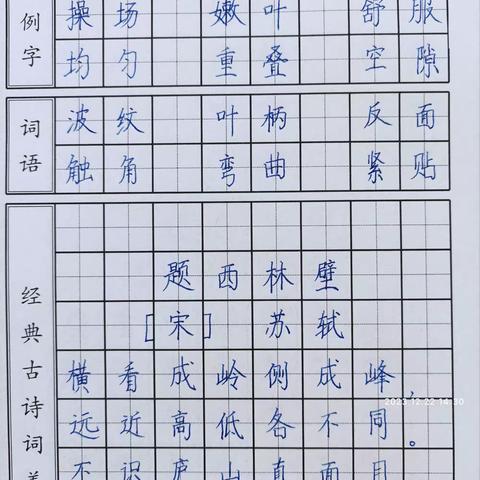 例字 操场 嫩叶 舒服
均匀 重叠 空隙
词语 波纹 叶柄 反面
触角 弯曲 紧贴
经典古诗词
题西林壁
[宋] 苏轼
横看成岭侧成峰，
远近高低各不同。
不识庐山真面目
2023.12.22 14:30